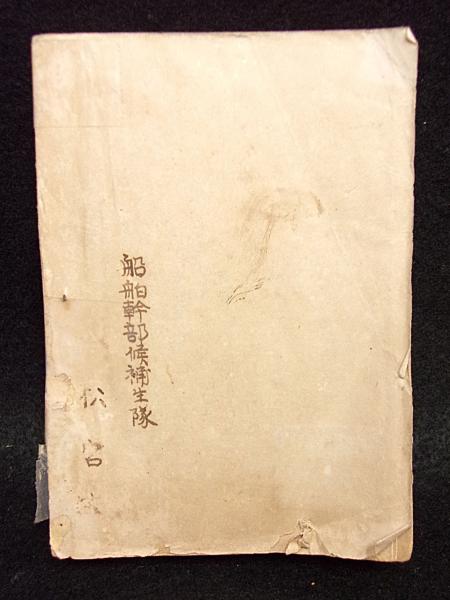 船舶幹部候補生隊
松宮